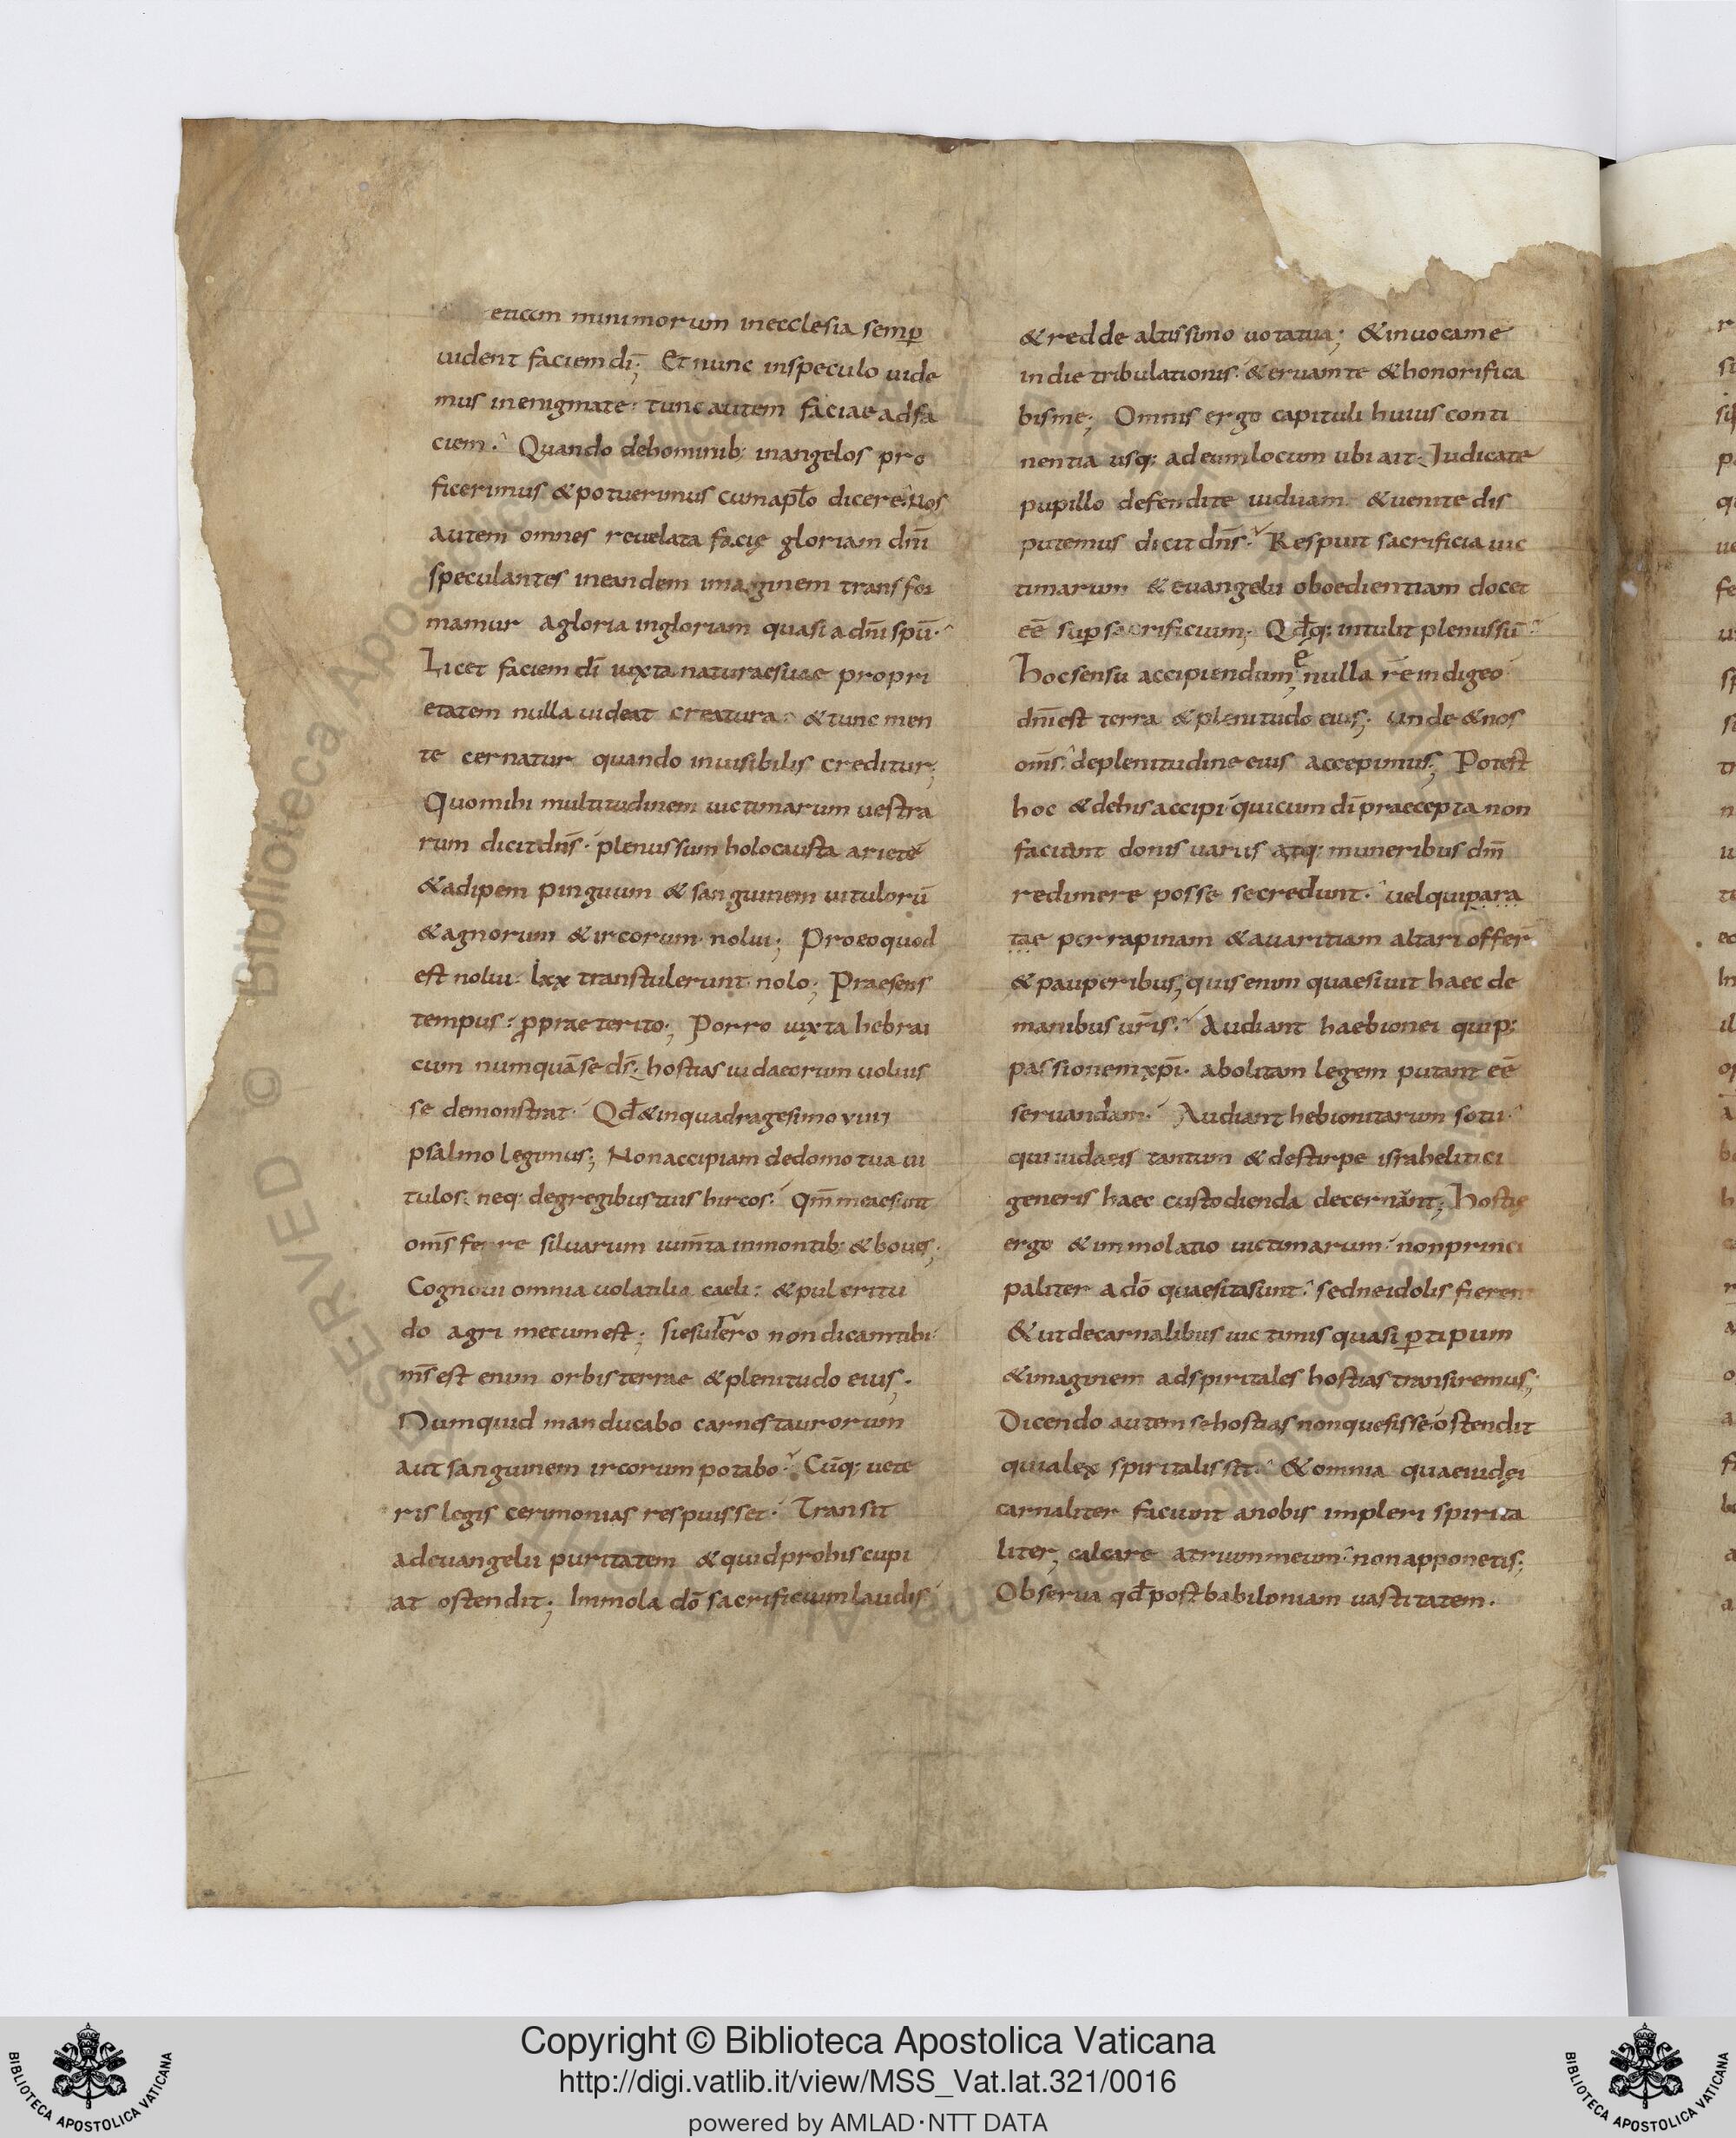 etiam minimorum inecclesia semꝑ
uident faciem dī; Et nunc inspeculo uide
mus inenigmate· tunc autem faciae adfa
ciem· Quando dehominib; inangelos pro
ficerimus & potuerimus cum aptō dicere· uos
autem omnes reuelata facię gloriam dnī
speculantes ineandem imaginem transfor
mamur agloria ingloriam quasi a dnī spū·
Licet faciem dī iuxta naturae suae propri
etatem nulla uideat creatura· & tunc men
te cernatur quando inuisibilis creditur;
Quo mihi multitudinem uictimarum uestra
rum dicit dns̄· plenus sum holocausta arietē
& adipem pinguium & sanguinem uitulorū
& agnorum & ircorum nolui; Pro eo quod
est nolui· lxx transtulerunt nolo; Praesens
tempus· ꝓ praeterito; Porro iuxta hebrai
cum numquā se ds̄· hostias iudaeorum uoluis
se demonstrat· Qd̄ & inquadragesimo viiii
psalmo legimus; Non accipiam dedomo tua ui
tulos· neq; degregibus tuis hircos· Qm̄ meae sunt
oms̄ ferae siluarum iumta inmontib; & boues;
Cognoui omnia uolatilia caeli· & pulcritu
do agri mecum est; si esuriero non dicam tibi·
ms̄ est enim orbis terrae & plenitudo eius;
Numquid manducabo carnes taurorum
aut sanguinem ircorum potabo· Cūq; uete
ris legis cerimonias respuisset· Transit
ad euangelii puritatem & quid pro his cupi
at ostendit; Immola dō sacrificium laudis
& redde altissimo uota tua; & inuoca me
in die tribulationis· & eruam te & honorifica
bis me; Omnis ergo capituli huius conti
nentia usq; ad eum locum ubi ait· Iudicate
pupillo defendite uiduam· & uenite dis
putemus dicit dns̄· Respuit sacrificia uic
timarum & euangelii oboedientiam docet
eē suꝑ sacrificium; Qd̄q; intulit plenus sū
hoc sensu accipiendum; nulla re indigeo
dnī est terra & plenitudo eius; unde & nos
oms̄ deplenitudine eius accepimus; Potest
hoc & de his accipi qui cum dī praecepta non
faciant donis uariis atq; muneribus dm̄
redimere posse se credunt· uel qui para
tae per rapinam & auaritiam altari offer
& pauperibus; quis enim quaesiuit haec de
manibus urīs· Audiant haebionei qui p;
passionem xp̄i· abolitam legem putant eē
seruandam· Audiant hebionitarum sotii·
qui iudaeis tantum & destirpe israhelitici
generis haec custodienda decernunt; Hostię
ergo & immolatio uictimarum· non princi
paliter a dō quaesita sunt· sed ne idolis fierent
& ut decarnalibus uictimis quasi ꝑ tipum
& imaginem ad spiritales hostias transiremus;
Dicendo autem se hostias non quesisse ostendit
quia lex spiritalis sit· & omnia quae iudęi
carnaliter faciunt anobis impleri spirita
liter; calcare atrium meum· non apponetis;
Obserua qd̄ post babiloniam uastitatem·
Copyright © Biblioteca Apostolica Vaticana
http://digi.vatlib.it/view/MSS_Vat.lat.321/0016
powered by AMLAD·NTT DATA
BIBLIOTECA APOSTOLICA VATICANA
BIBLIOTECA APOSTOLICA VATICANA